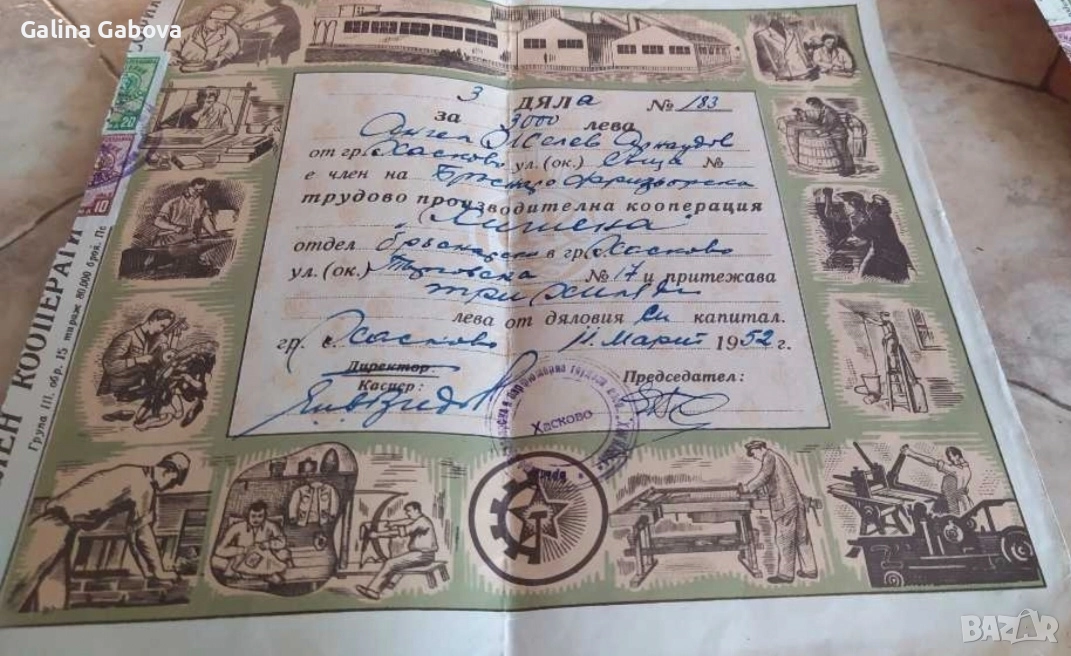 Galina Gabova
3 ДЯЛа № 183
за 3000 лева
Ангел Желев Арнаудов
от гр. с. Хасково ул. (ок.) Съща №
е член на Бръснаро фризьорска
трудово производителна кооперация
"Хигиена"
отдел бръснарски в гр. с. Хасково
ул. (ок.) Търговска № 17 и притежава
три хиляди
лева от дяловия си капитал.
гр. с. Хасково 11 Март 1952 г.
Директор:
Касиер:
Председател:
Хасково
КООПЕРАТИ
Група III. обр. 15 тираж 80.000 броя.
20
10
BAZAR